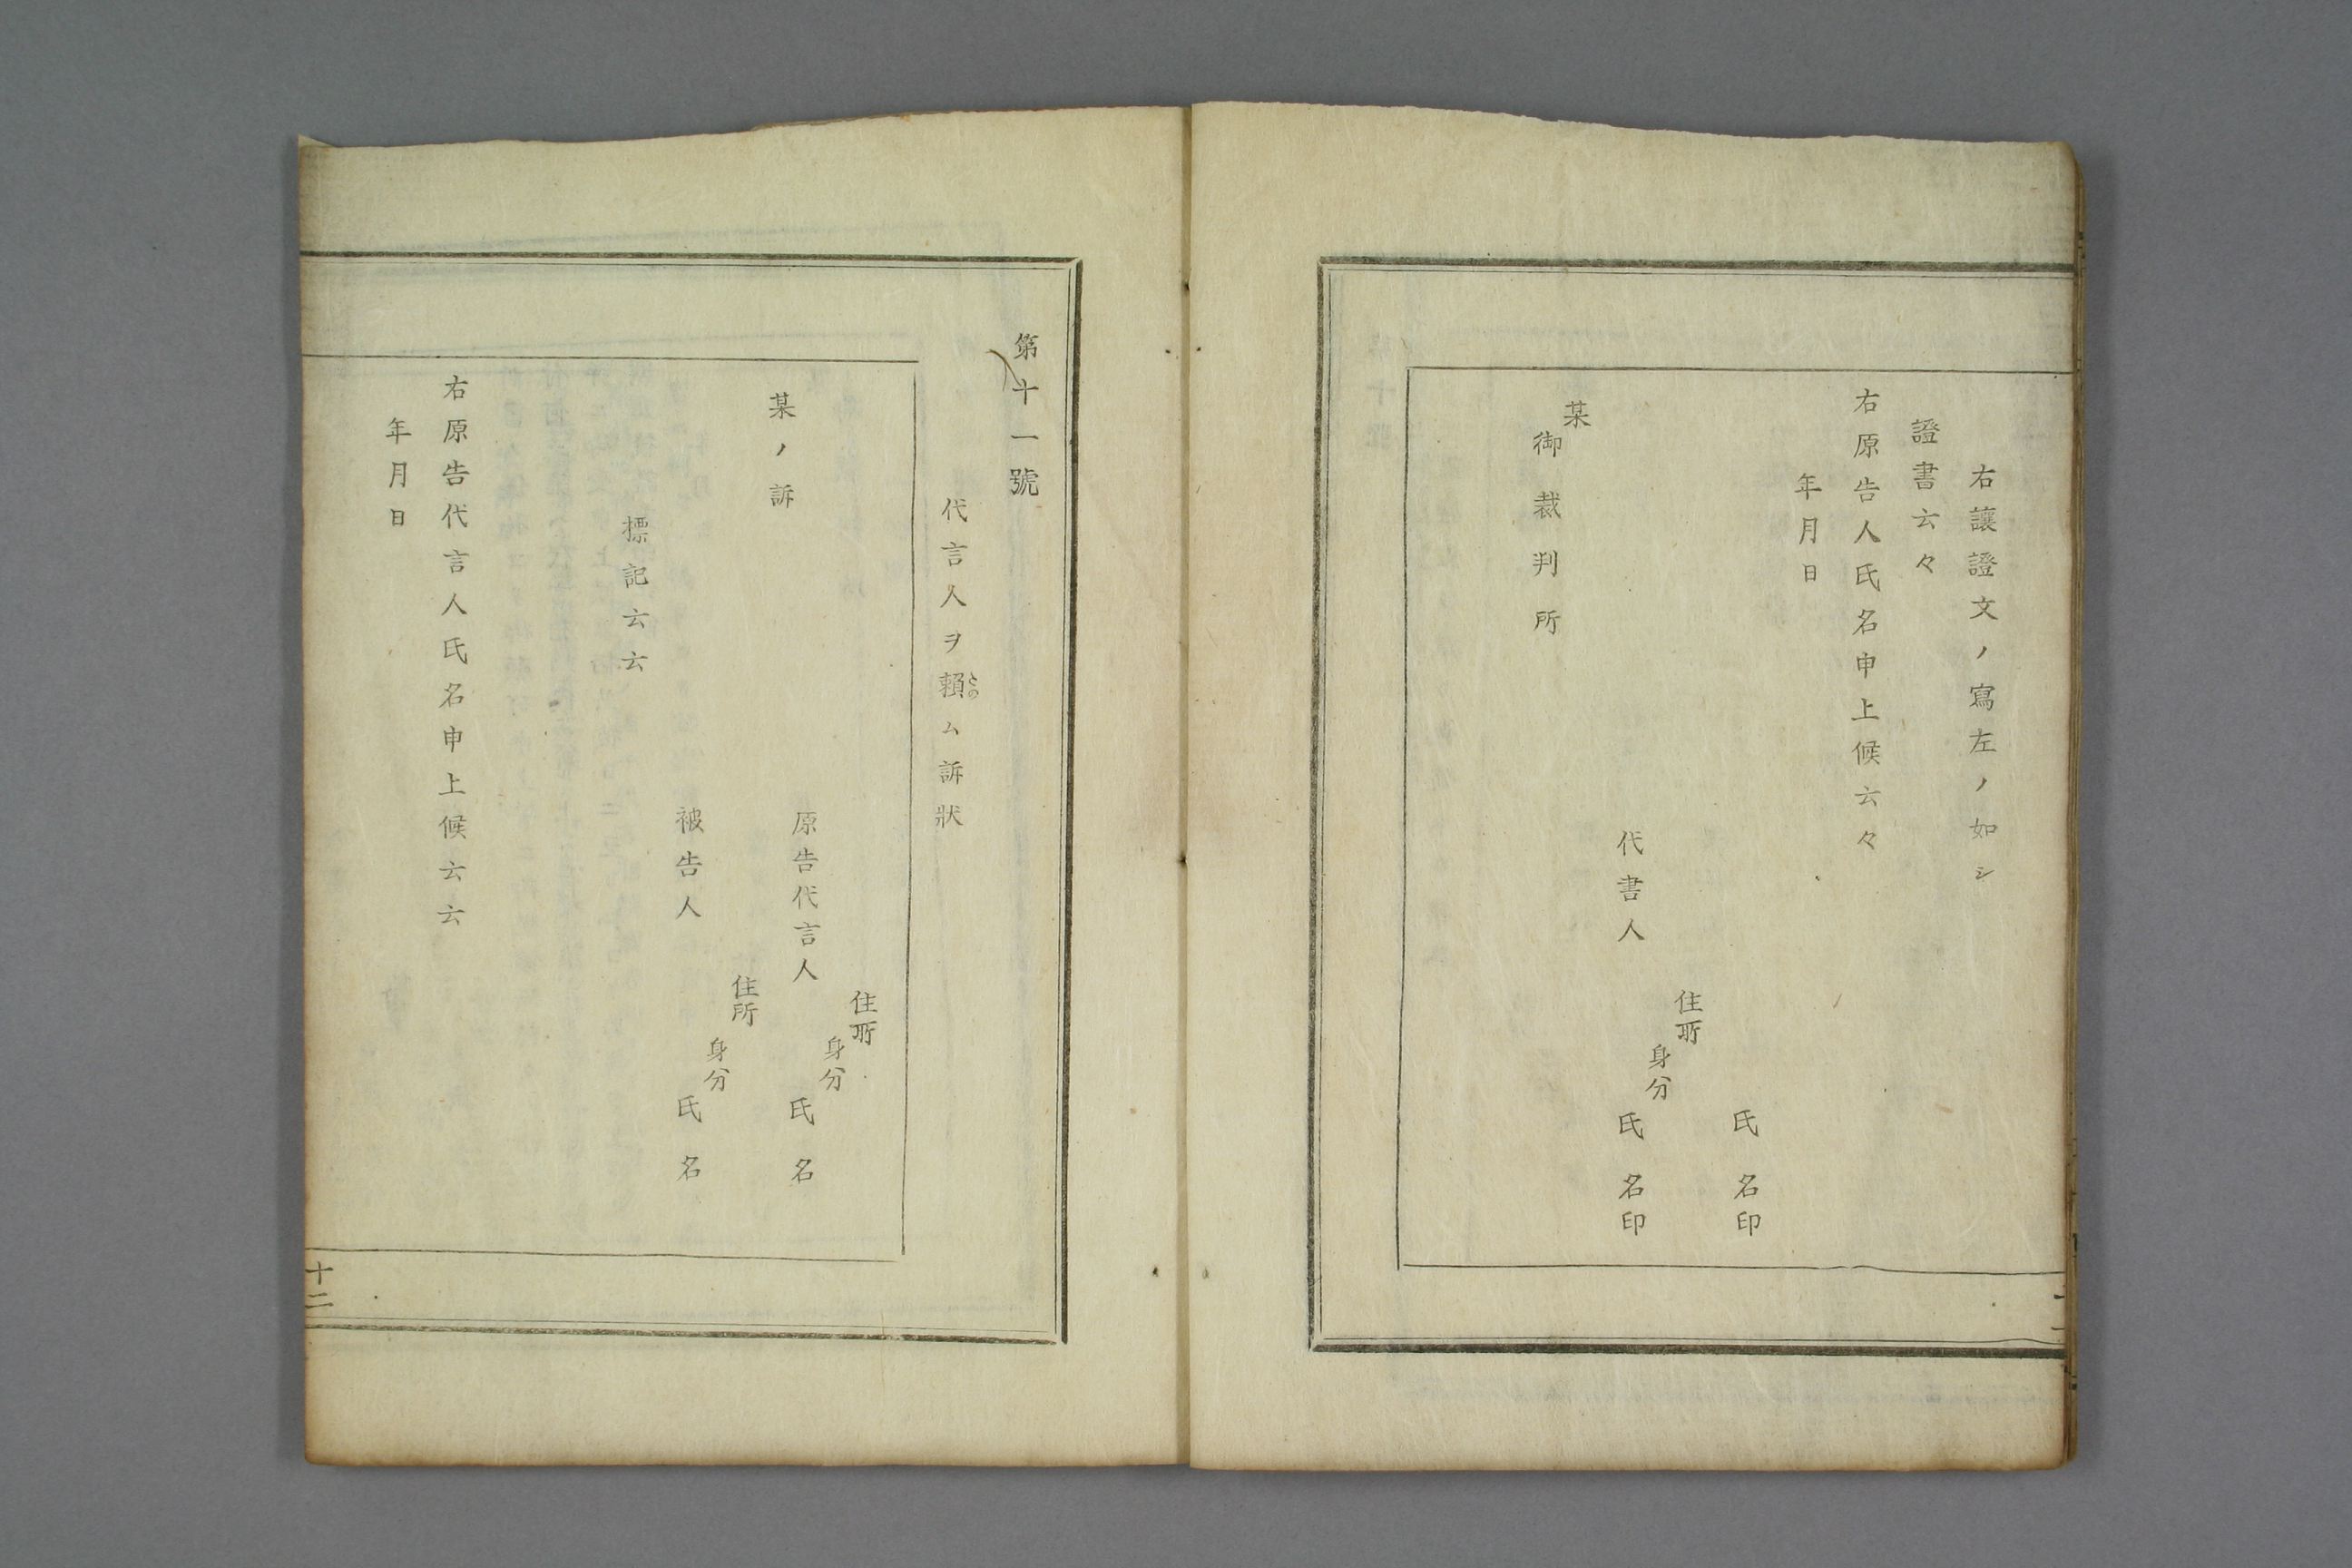 右讓證文ノ寫左ノ如シ
證書云々
右原告人氏名申上候云々
年月日
氏名印
住所
身分
代書人 氏名印
某
御裁判所
第十一號
代言人ヲ賴ム訴狀
たの
住所
身分
原告代言人 氏名
某ノ訴
住所
身分
被告人 氏名
標記云云
右原告代言人氏名申上候云云
年月日
十二